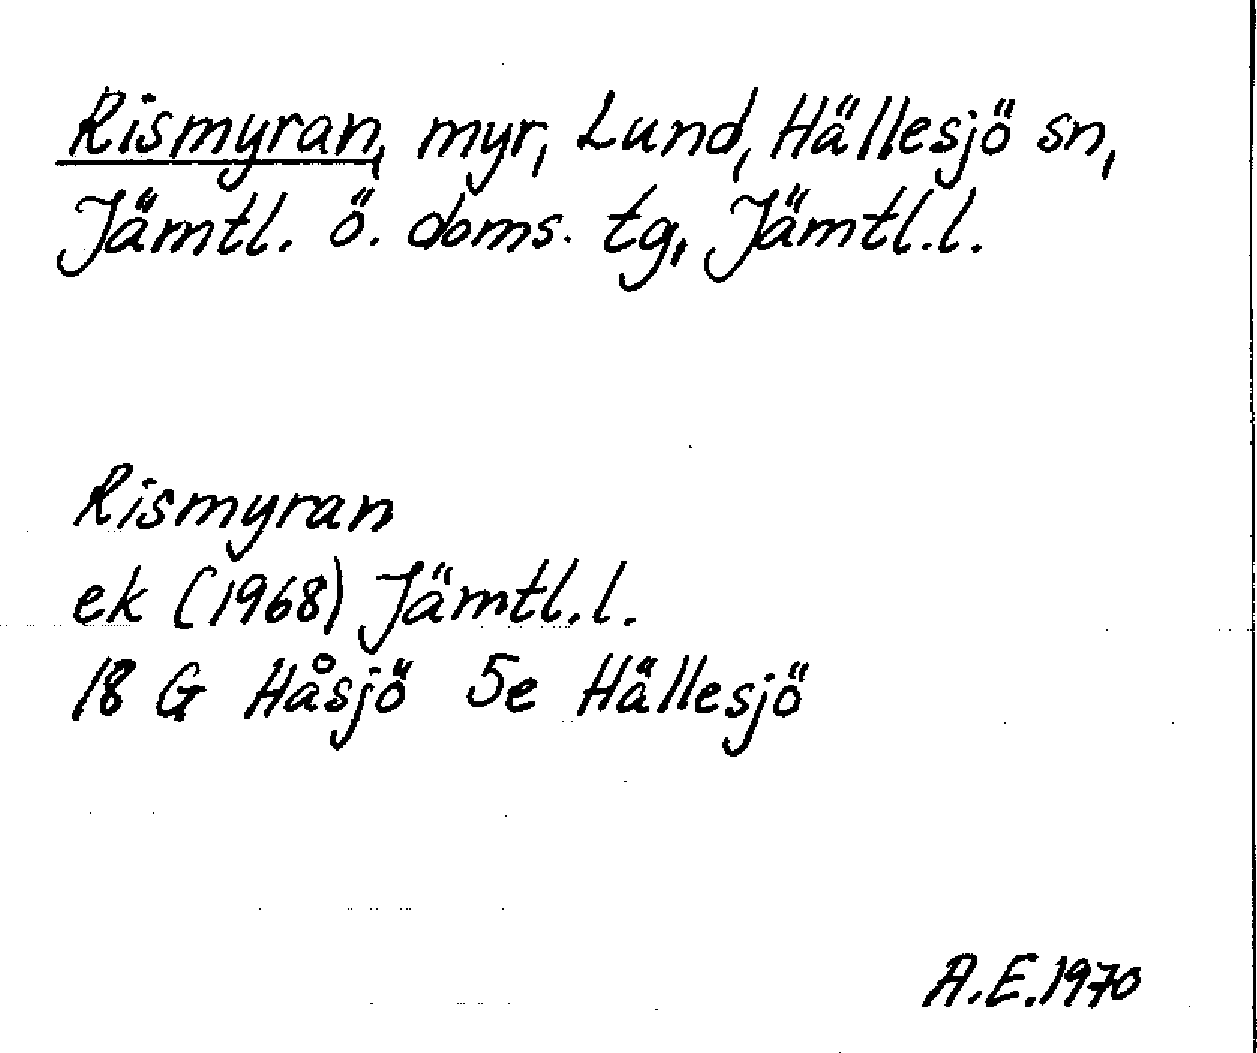 Rismyran, myr, Lund, Hällesjö sn,
Jämtl. ö. doms. tg, Jämtl.l.
Rismyran
ek (1968) Jämtl.l.
18 G Håsjö 5e Hällesjö
A.E.1970